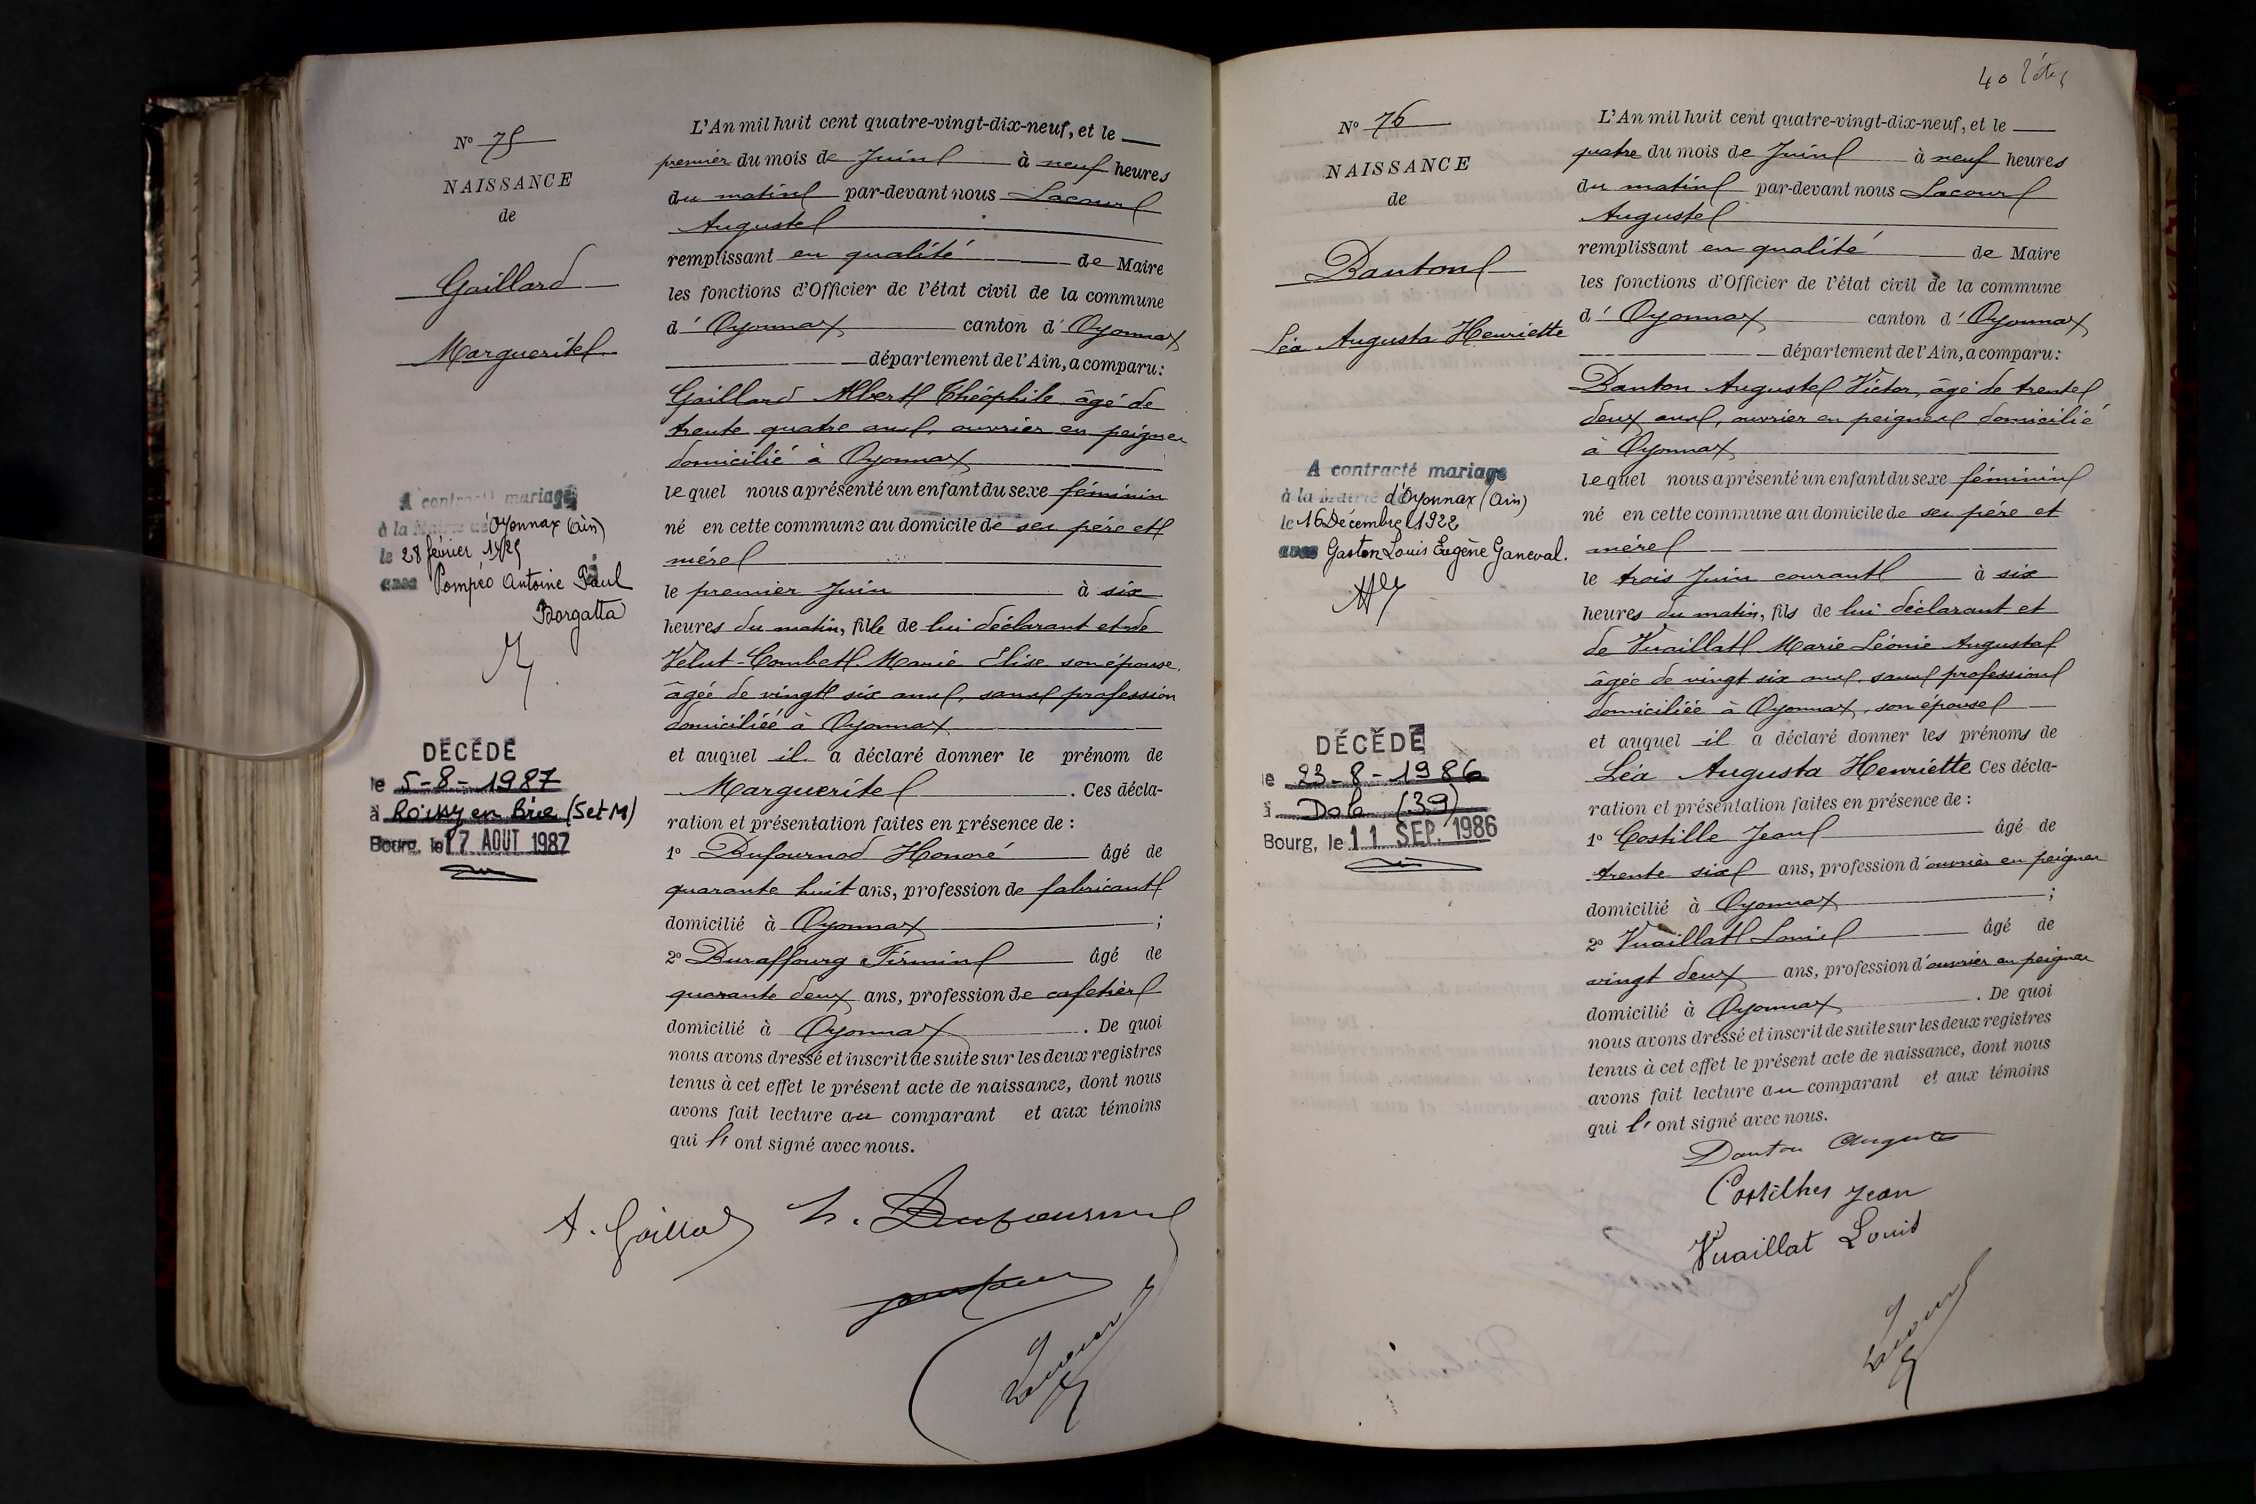 N° 75
NAISSANCE
de
Gaillard
Marguerite
A contracté mariage
à la Mairie d'Oyonnax (Ain)
le 28 février 1925
avec Pompéo Antoine Paul
Borgatta
DÉCÉDÉ
le 5-8-1987
à Roissy en Brie (S et M)
Bourg, le 17 AOUT 1987
L'An mil huit cent quatre-vingt-dix-neuf, et le
premier du mois de Juin à neuf heures
du matin par-devant nous Lacour
Auguste
remplissant en qualité de Maire
les fonctions d'Officier de l'état civil de la commune
d' Oyonnax canton d' Oyonnax
département de l'Ain, a comparu:
Gaillard Albert Théophile âgé de
trente quatre ans, ouvrier en peignes
domicilié à Oyonnax
lequel nous a présenté un enfant du sexe féminin
né en cette commune au domicile de ses père et
mère
le premier Juin à six
heures du matin, fille de lui déclarant et de
Velut-Combet Marie Elise son épouse,
âgée de vingt six ans, sans profession
domiciliée à Oyonnax
et auquel il a déclaré donner le prénom de
Marguerite . Ces décla-
ration et présentation faites en présence de :
1° Dufournod Honoré âgé de
quarante huit ans, profession de fabricant
domicilié à Oyonnax ;
2° Duraffourg Firmin âgé de
quarante deux ans, profession de cafetier
domicilié à Oyonnax . De quoi
nous avons dressé et inscrit de suite sur les deux registres
tenus à cet effet le présent acte de naissance, dont nous
avons fait lecture au comparant et aux témoins
qui l' ont signé avec nous.
A. Gaillard H. Dufournod
Lacour
40 
N° 76
NAISSANCE
de
Danton
Léa Augusta Henriette
A contracté mariage
à la Mairie d'Oyonnax (Ain)
le 16 Décembre 1922
avec Gaston Louis Eugène Ganeval.
DÉCÉDÉ
le 23-8-1986
à Dole (39)
Bourg, le 11 SEP. 1986
L'An mil huit cent quatre-vingt-dix-neuf, et le
quatre du mois de Juin à neuf heures
du matin par-devant nous Lacour
Auguste
remplissant en qualité de Maire
les fonctions d'Officier de l'état civil de la commune
d' Oyonnax canton d' Oyonnax
département de l'Ain, a comparu:
Danton Auguste Victor, âgé de trente
deux ans, ouvrier en peignes domicilié
à Oyonnax
lequel nous a présenté un enfant du sexe féminin
né en cette commune au domicile de ses père et
mère
le trois Juin courant à six
heures du matin, fils de lui déclarant et
de Vuaillat Marie Léonie Augusta
âgée de vingt six ans, sans profession
domiciliée à Oyonnax, son épouse
et auquel il a déclaré donner les prénoms de
Léa Augusta Henriette Ces décla-
ration et présentation faites en présence de :
1° Costille Jean âgé de
trente six ans, profession d'ouvrier en peignes
domicilié à Oyonnax ;
2° Vuaillat Louis âgé de
vingt deux ans, profession d'ouvrier en peignes
domicilié à Oyonnax . De quoi
nous avons dressé et inscrit de suite sur les deux registres
tenus à cet effet le présent acte de naissance, dont nous
avons fait lecture au comparant et aux témoins
qui l' ont signé avec nous.
Danton Auguste
Costilhes Jean
Vuaillat Louis
Lacour